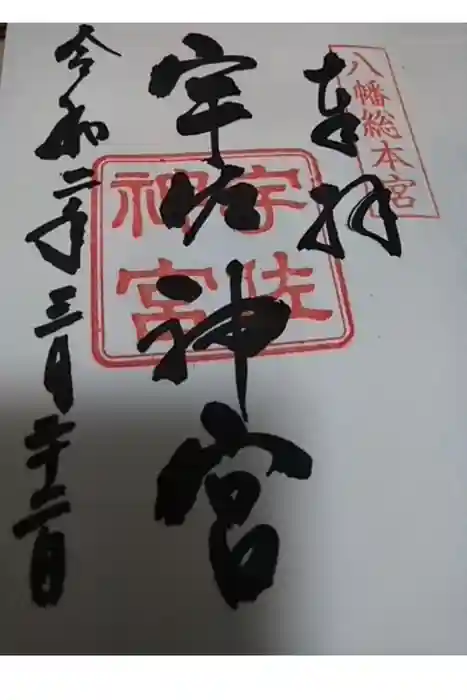 八幡総本宮
奉拝
宇佐神宮
宇佐
神宮
令和二年三月二十二日